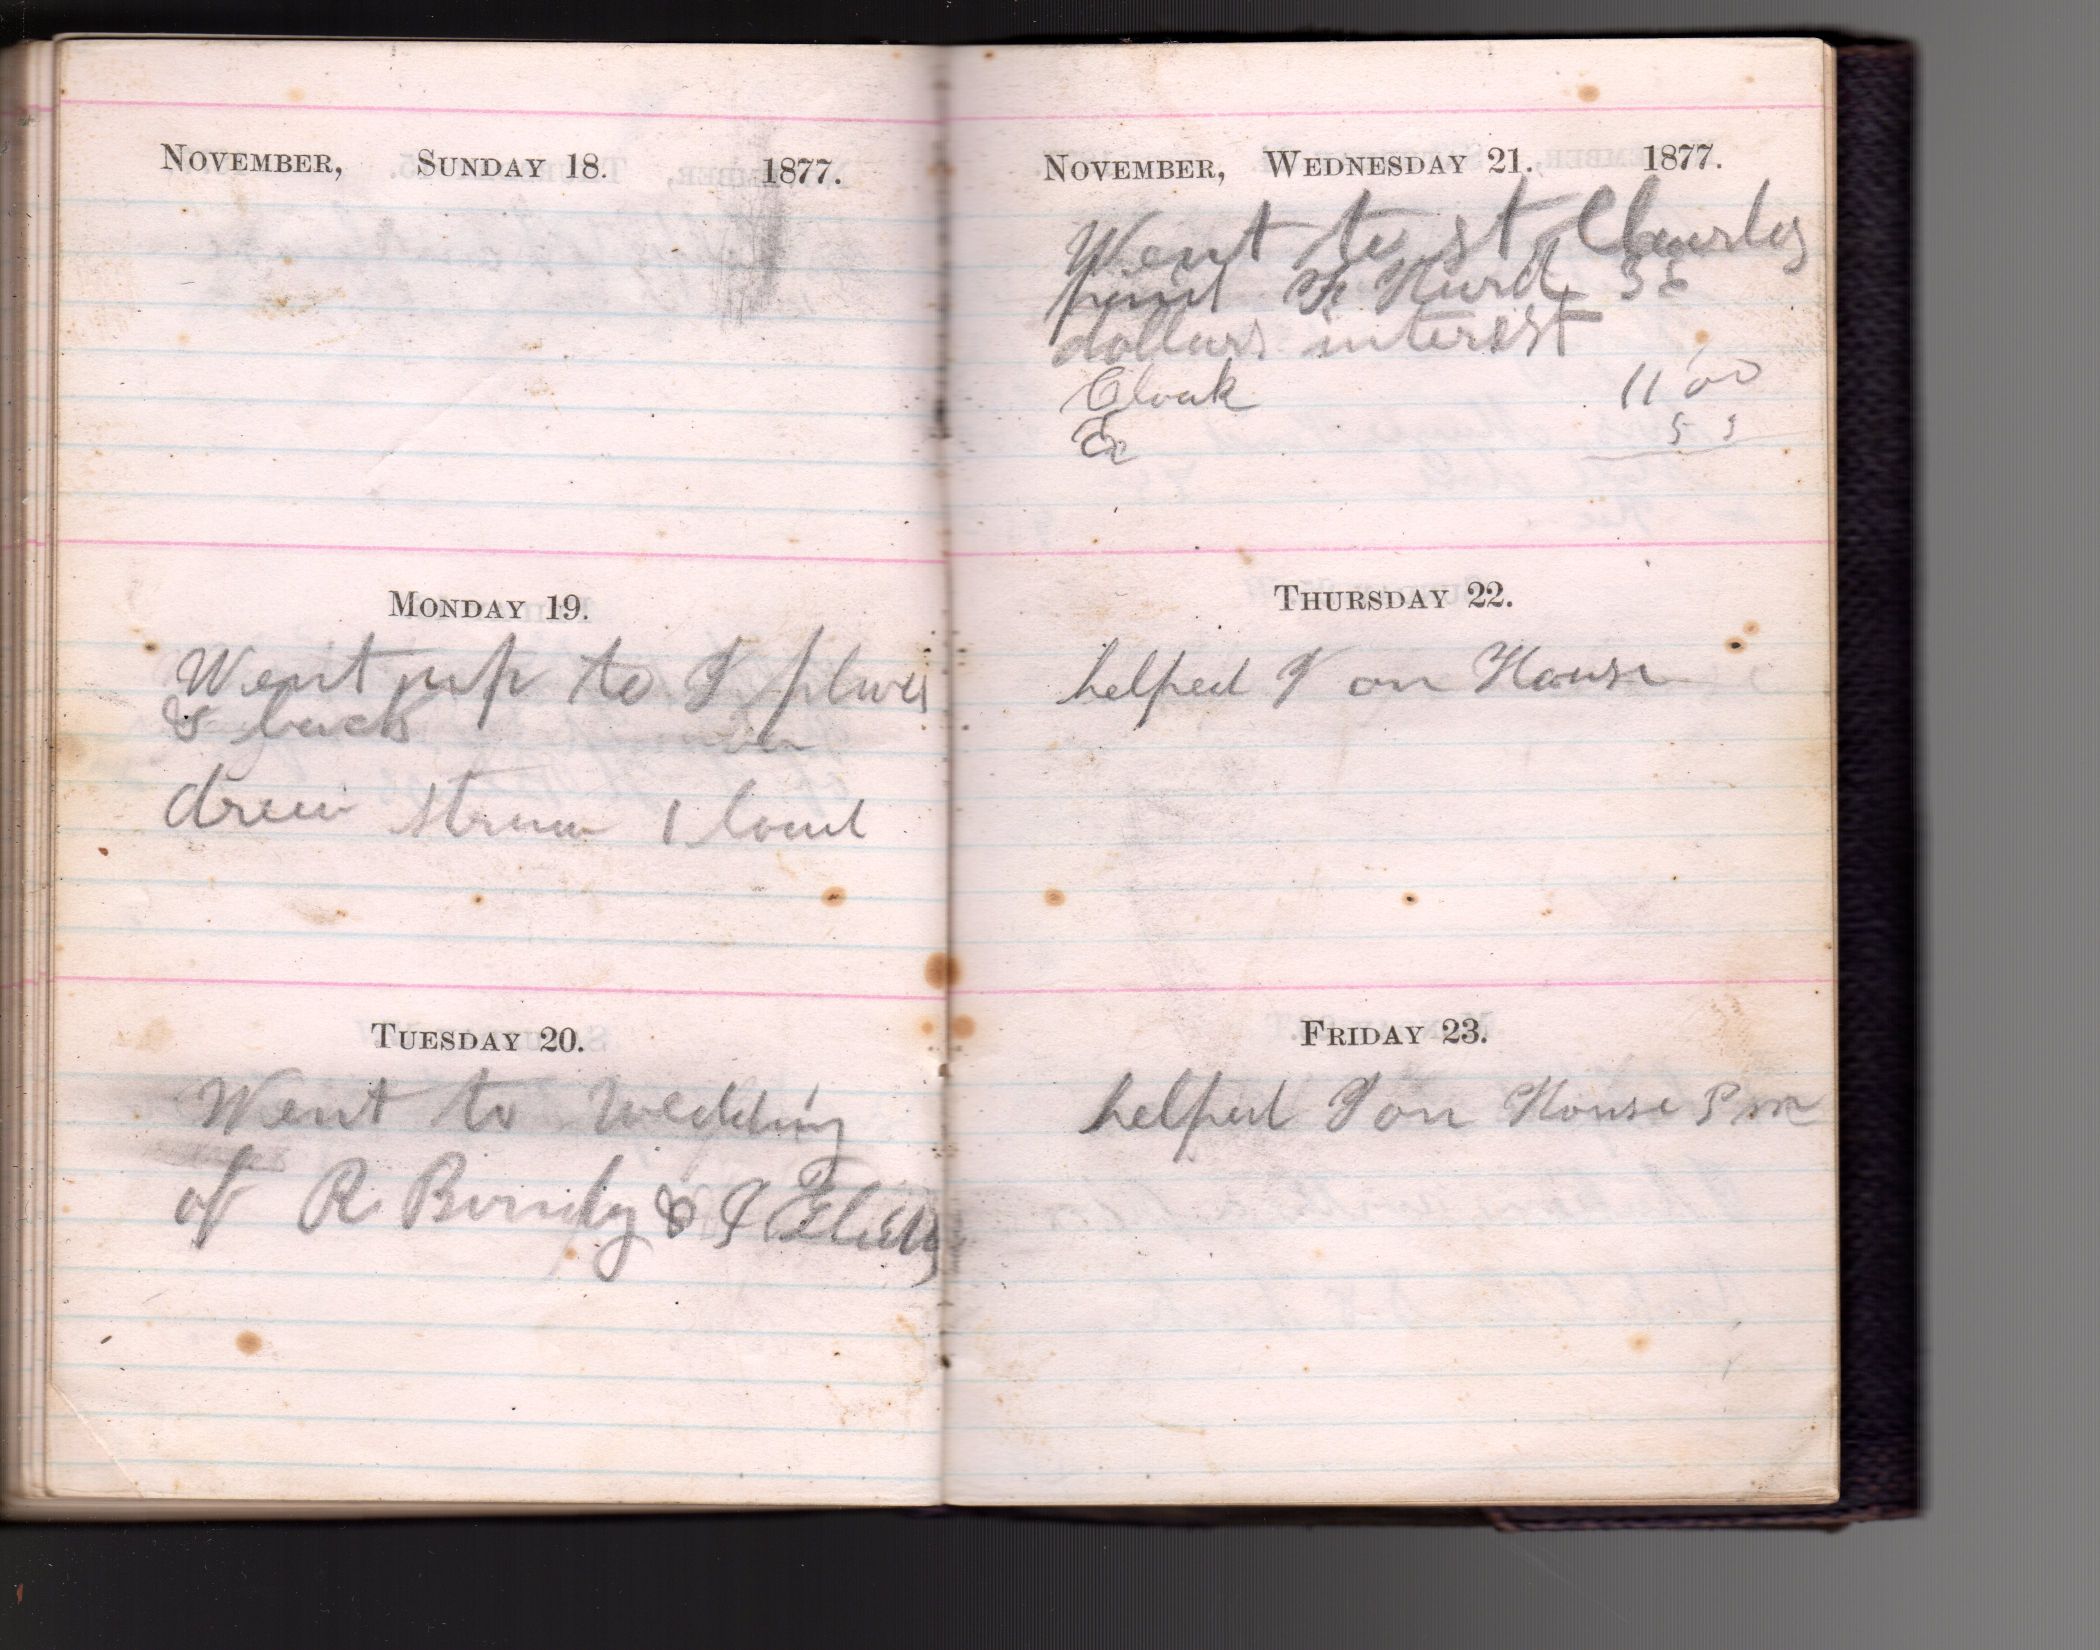 NOVEMBER, SUNDAY 18. 1877.
MONDAY 19.
Went up to place
& back
drew straw 1 load
TUESDAY 20.
Went to wedding
of R &
NOVEMBER, WEDNESDAY 21. 1877.
Went to st Charles
paid F Hurd 36
dollars interest
Cloak 11 00
THURSDAY 22.
helped on House
FRIDAY 23.
helped on House P m